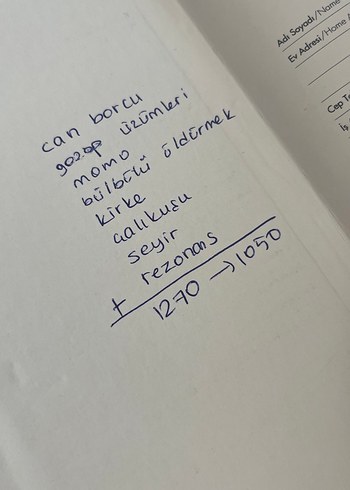 can borcu
gazap üzümleri
momo
bülbülü öldürmek
kirke
çalıkuşu
seyir
rezonans
+
1270 → 1050
Adı Soyadı/Name
Ev Adresi/Home
Cep Te
İş